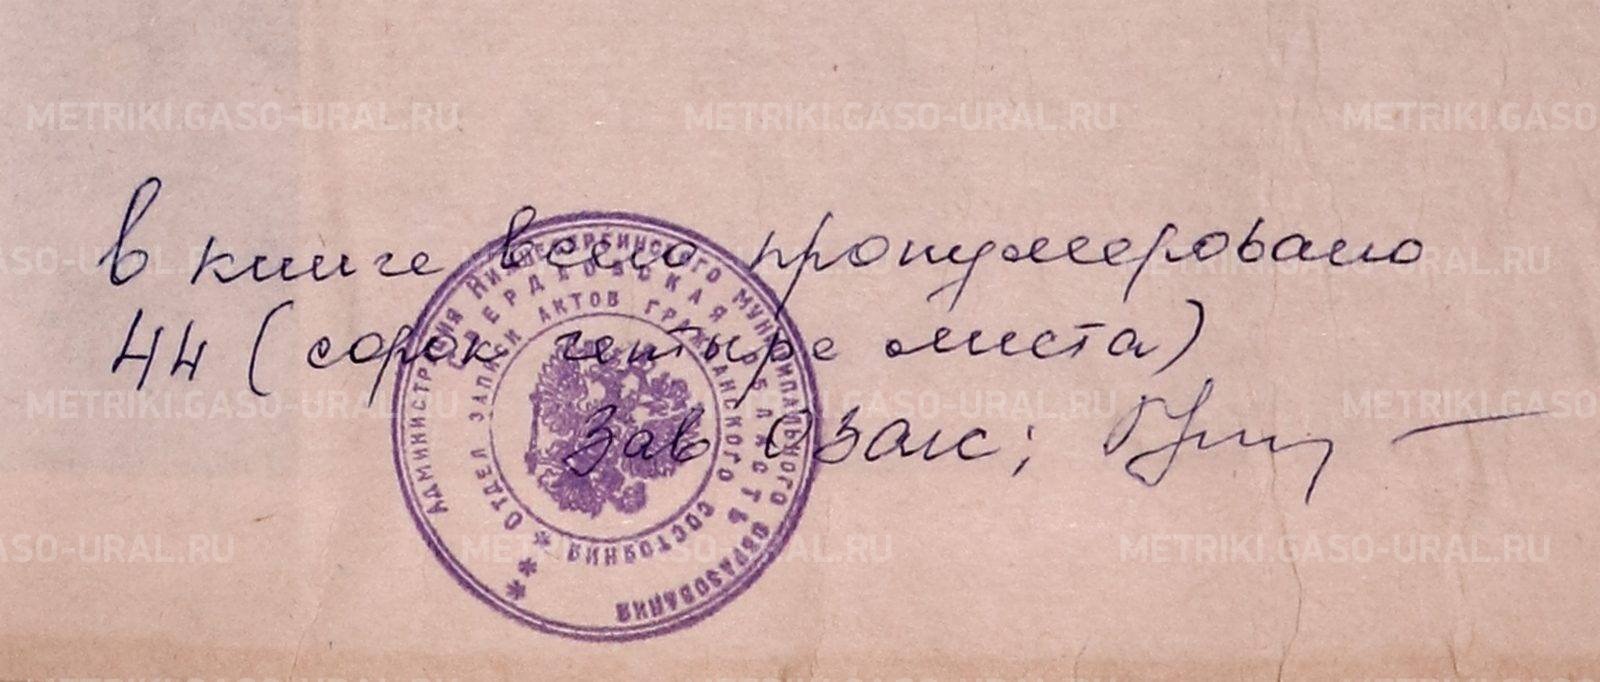 METRIKI.GASO-URAL.RU METRIKI.GASO-URAL.RU METRIKI.GASO
В книге всего пронумеровано
44 (сорок четыре листа)
Зав ОЗАГС;
АДМИНИСТРАЦИЯ НИЖНЕСЕРГИНСКОГО МУНИЦИПАЛЬНОГО ОБРАЗОВАНИЯ
СВЕРДЛОВСКАЯ ОБЛАСТЬ
* ОТДЕЛ ЗАПИСИ АКТОВ ГРАЖДАНСКОГО СОСТОЯНИЯ
ASO-URAL.RU METRIKI.GASO-URAL.RU METRIKI.GASO-URAL.RU
METRIKI.GASO-URAL.RU METRIKI.GASO-URAL.RU METRIKI.GASO
ASO-URAL.RU METRIKI.GASO-URAL.RU METRIKI.GASO-URAL.RU